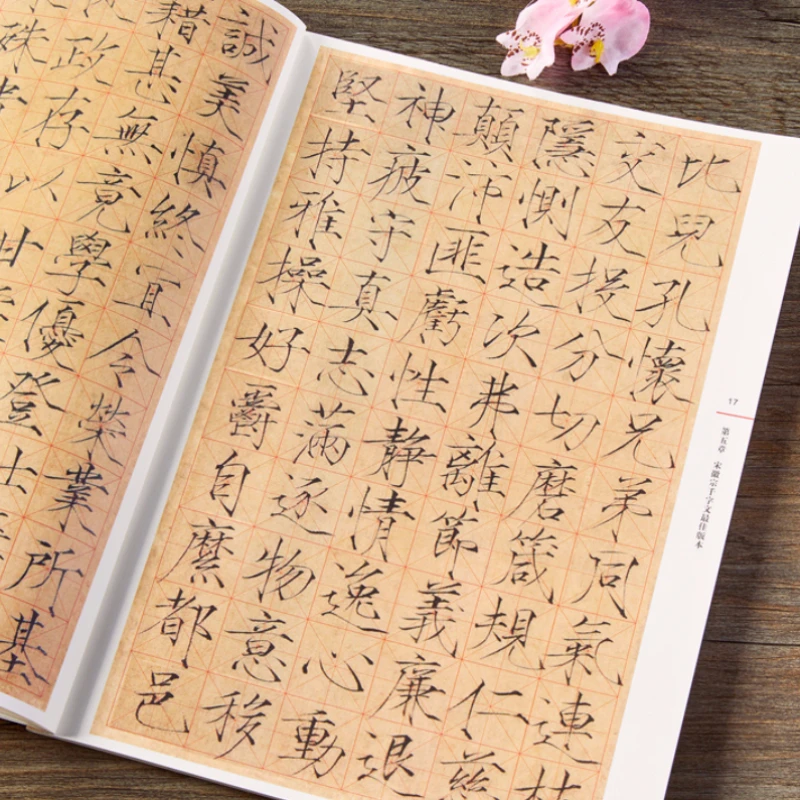 誠美慎終宜令榮業所基
藉甚無竟學優登仕
政存以甘
殊
比兒孔懷兄弟同氣連枝
交友投分切磨箴規仁慈
隱惻造次弗離節義廉退
顛沛匪虧性靜情逸心動
神疲守真志滿逐物意移
堅持雅操好爵自縻都邑
17
第五章 宋徽宗千字文最佳版本